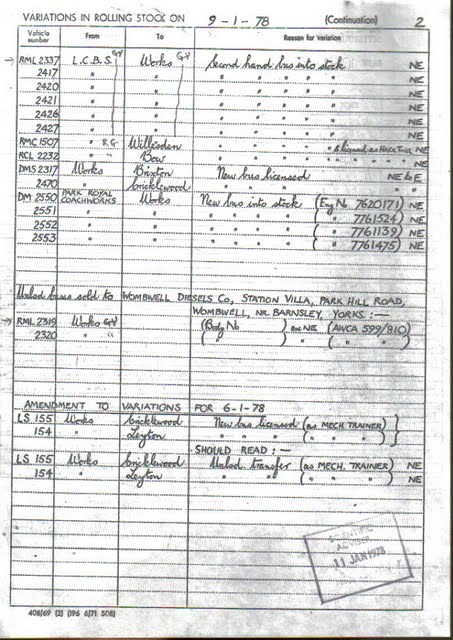 VARIATIONS IN ROLLING STOCK ON 9-1-78 (Continuation) 2
Vehicle number From To Reason for variation
RML 2337 L.C.B.S. GY Works GY Second hand bus into stock NE
2417 " " " " " " " NE
2420 " " " " " " " NE
2421 " " " " " " " NE
2426 " " " " " " " NE
2427 " " " " " " " NE
RMC 1507 " RG Willesden " " " " " & licensed as NE
RCL 2232 " " Bow " " " " " " " " NE
DMS 2317 Works Brixton New bus licensed NE
2470 " Cricklewood " " " "
DM 2550 PARK ROYAL COACHWORKS Works New bus into stock (Eng No 7620171) NE
2551 " " " " " " ( " 7761524) NE
2552 " " " " " " ( " 7761139) NE
2553 " " " " " " ( " 7761475) NE
Unlsd buses sold to WOMBWELL DIESELS Co, STATION VILLA, PARK HILL ROAD,
WOMBWELL, NR. BARNSLEY, YORKS. :—
RML 2319 Works GY (Body No ) NE (AWCA 599/910)
2320 " " ( ) " " ( " )
AMENDMENT TO VARIATIONS FOR 6-1-78
LS 155 Works Cricklewood New bus licensed (as MECH TRAINER)
154 " Leyton " " " ( " " " )
SHOULD READ :—
LS 155 Works Cricklewood Unlsd transfer (as MECH. TRAINER) NE
154 " Leyton " " ( " " " ) NE
SCIENTIFIC
ADVISER
11 JAN 1978
408/69 (2) (196 6/71 508)